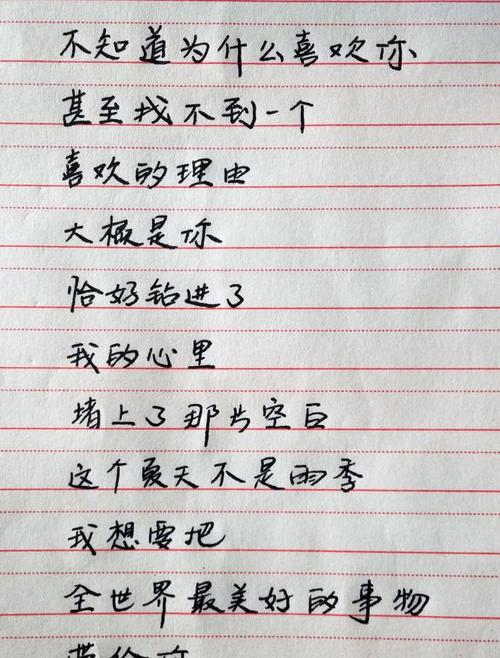 不知道为什么喜欢你
甚至找不到一个
喜欢的理由
大概是你
恰好钻进了
我的心里
堵上了那片空白
这个夏天不是雨季
我想要把
全世界最美好的事物